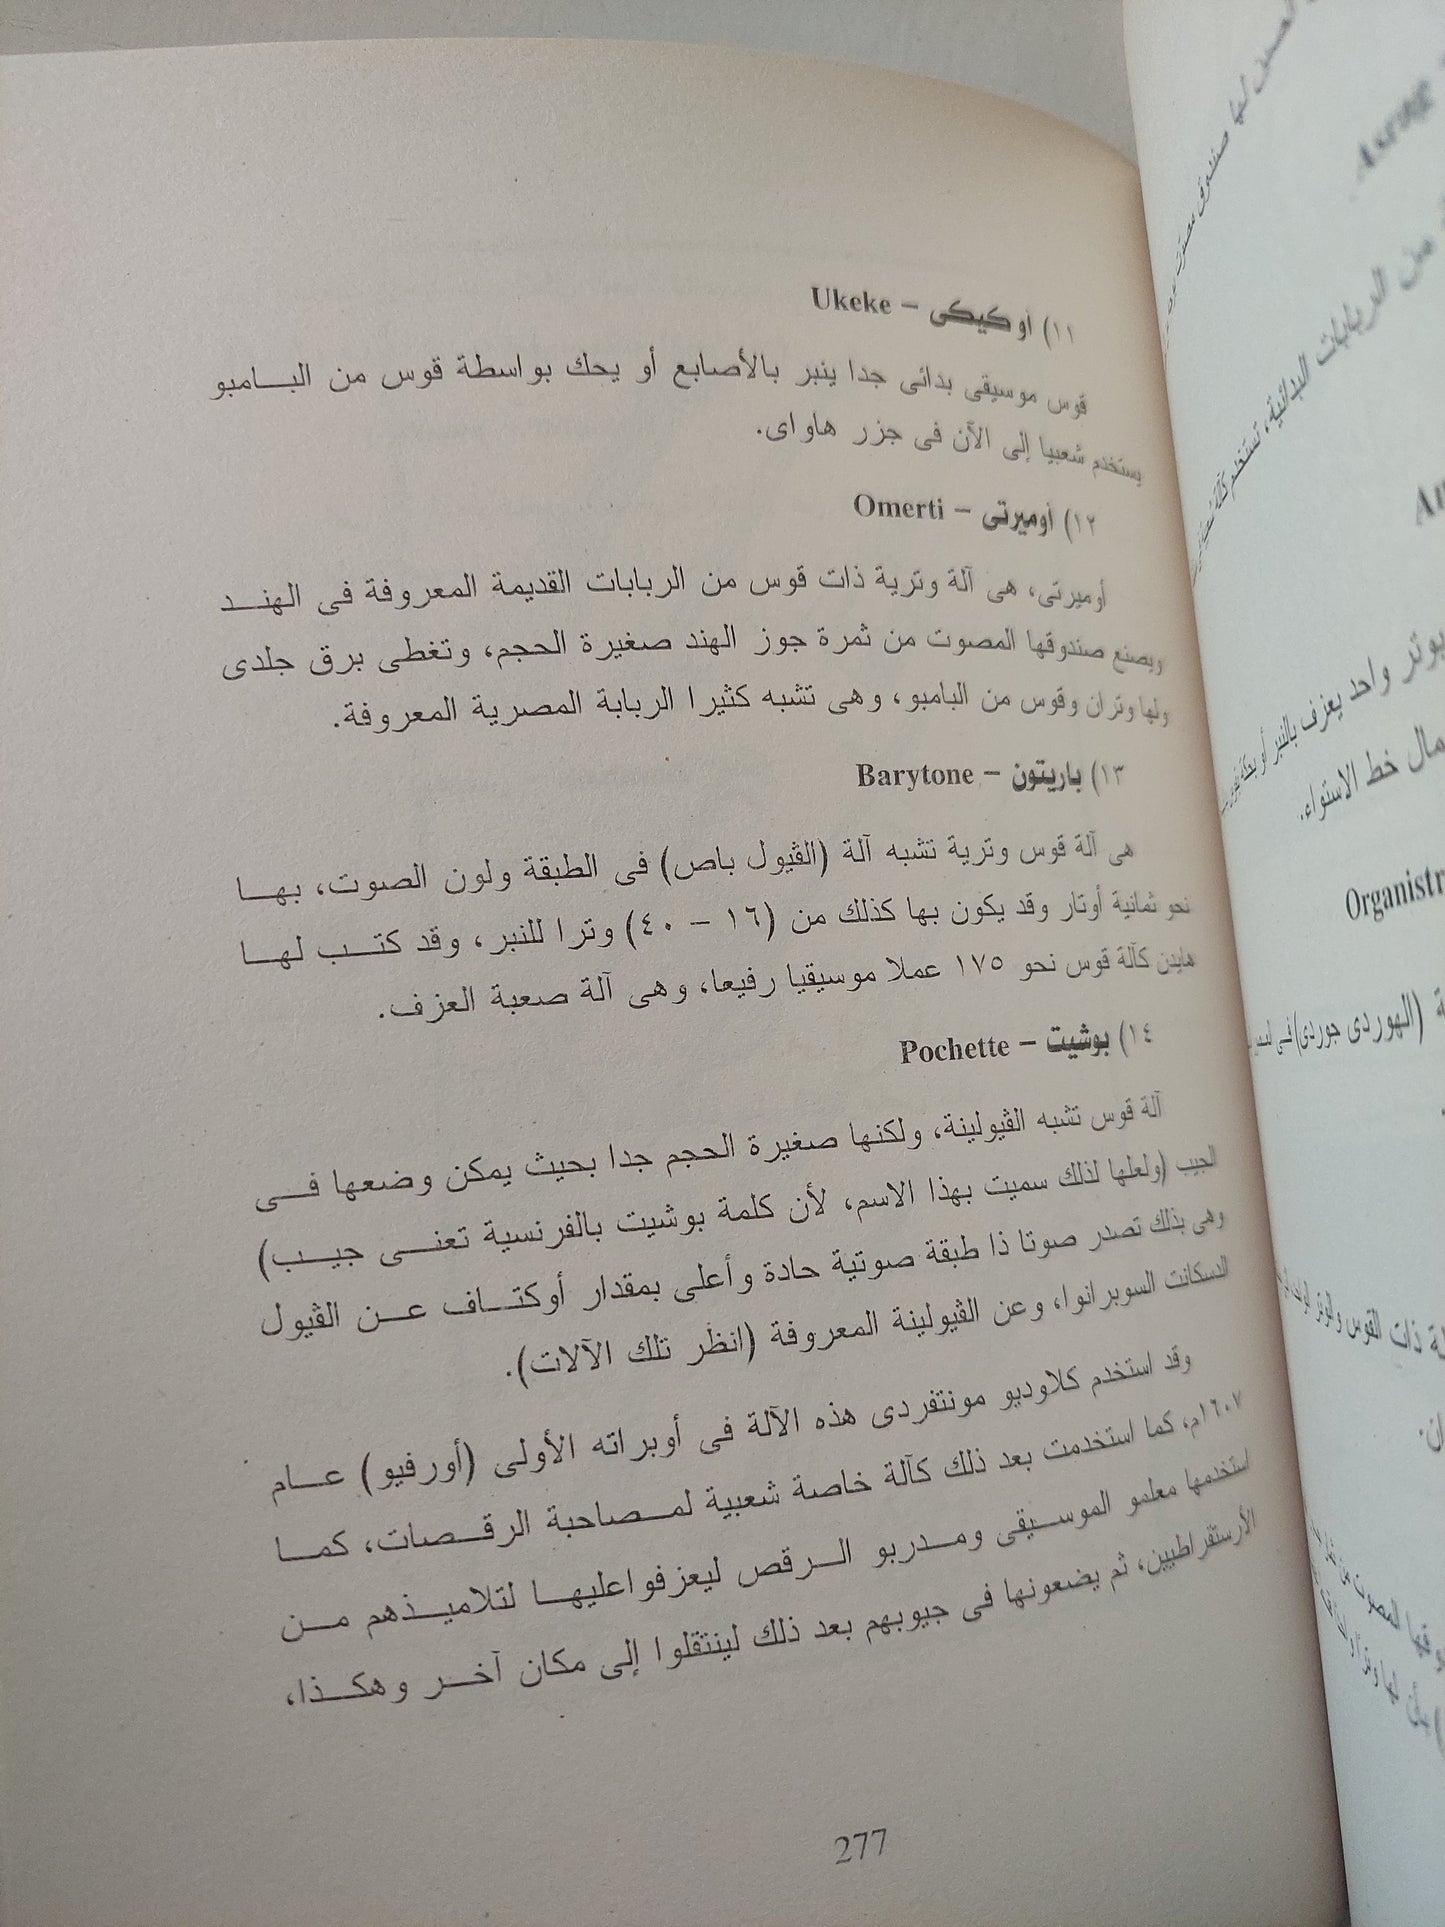 ١١) أوكيكى – Ukeke
قوس موسيقى بدائى جدا ينبر بالأصابع أو يحك بواسطة قوس من البامبو
يستخدم شعبيا إلى الآن فى جزر هاواى.
١٢) أوميرتى – Omerti
أوميرتى، هى آلة وترية ذات قوس من الربابات القديمة المعروفة فى الهند
ويصنع صندوقها المصوت من ثمرة جوز الهند صغيرة الحجم، وتغطى برق جلدى
ولها وتران وقوس من البامبو، وهى تشبه كثيرا الربابة المصرية المعروفة.
١٣) باريتون – Barytone
هى آلة قوس وترية تشبه آلة (الڤيول باص) فى الطبقة ولون الصوت، بها
نحو ثمانية أوتار وقد يكون بها كذلك من (١٦ – ٤٠) وترا للنبر، وقد كتب لها
هايدن كآلة قوس نحو ١٧٥ عملا موسيقيا رفيعا، وهى آلة صعبة العزف.
١٤) بوشيت – Pochette
آلة قوس تشبه الڤيولينة، ولكنها صغيرة الحجم جدا بحيث يمكن وضعها فى
الجيب (ولعلها لذلك سميت بهذا الاسم، لأن كلمة بوشيت بالفرنسية تعنى جيب)
وهى بذلك تصدر صوتا ذا طبقة صوتية حادة وأعلى بمقدار أوكتاف عن الڤيول
الدسكانت السوبرانوا، وعن الڤيولينة المعروفة (انظر تلك الآلات).
وقد استخدم كلاوديو مونتفردى هذه الآلة فى أوبراته الأولى (أورفيو) عام
١٦٠٧م، كما استخدمت بعد ذلك كآلة خاصة شعبية لمصاحبة الرقصات، كما
استخدمها معلمو الموسيقى ومدربو الرقص ليعزفواعليها لتلاميذهم من
الأرستقراطيين، ثم يضعونها فى جيوبهم بعد ذلك لينتقلوا إلى مكان آخر وهكذا،
277
لها صندوق
من الربابات البدائية، تستخدم كآلة
بوتر واحد يعزف بالنبر أو
خط الاستواء.
Organistr
(الهوردى جوردى) فى
ذات القوس